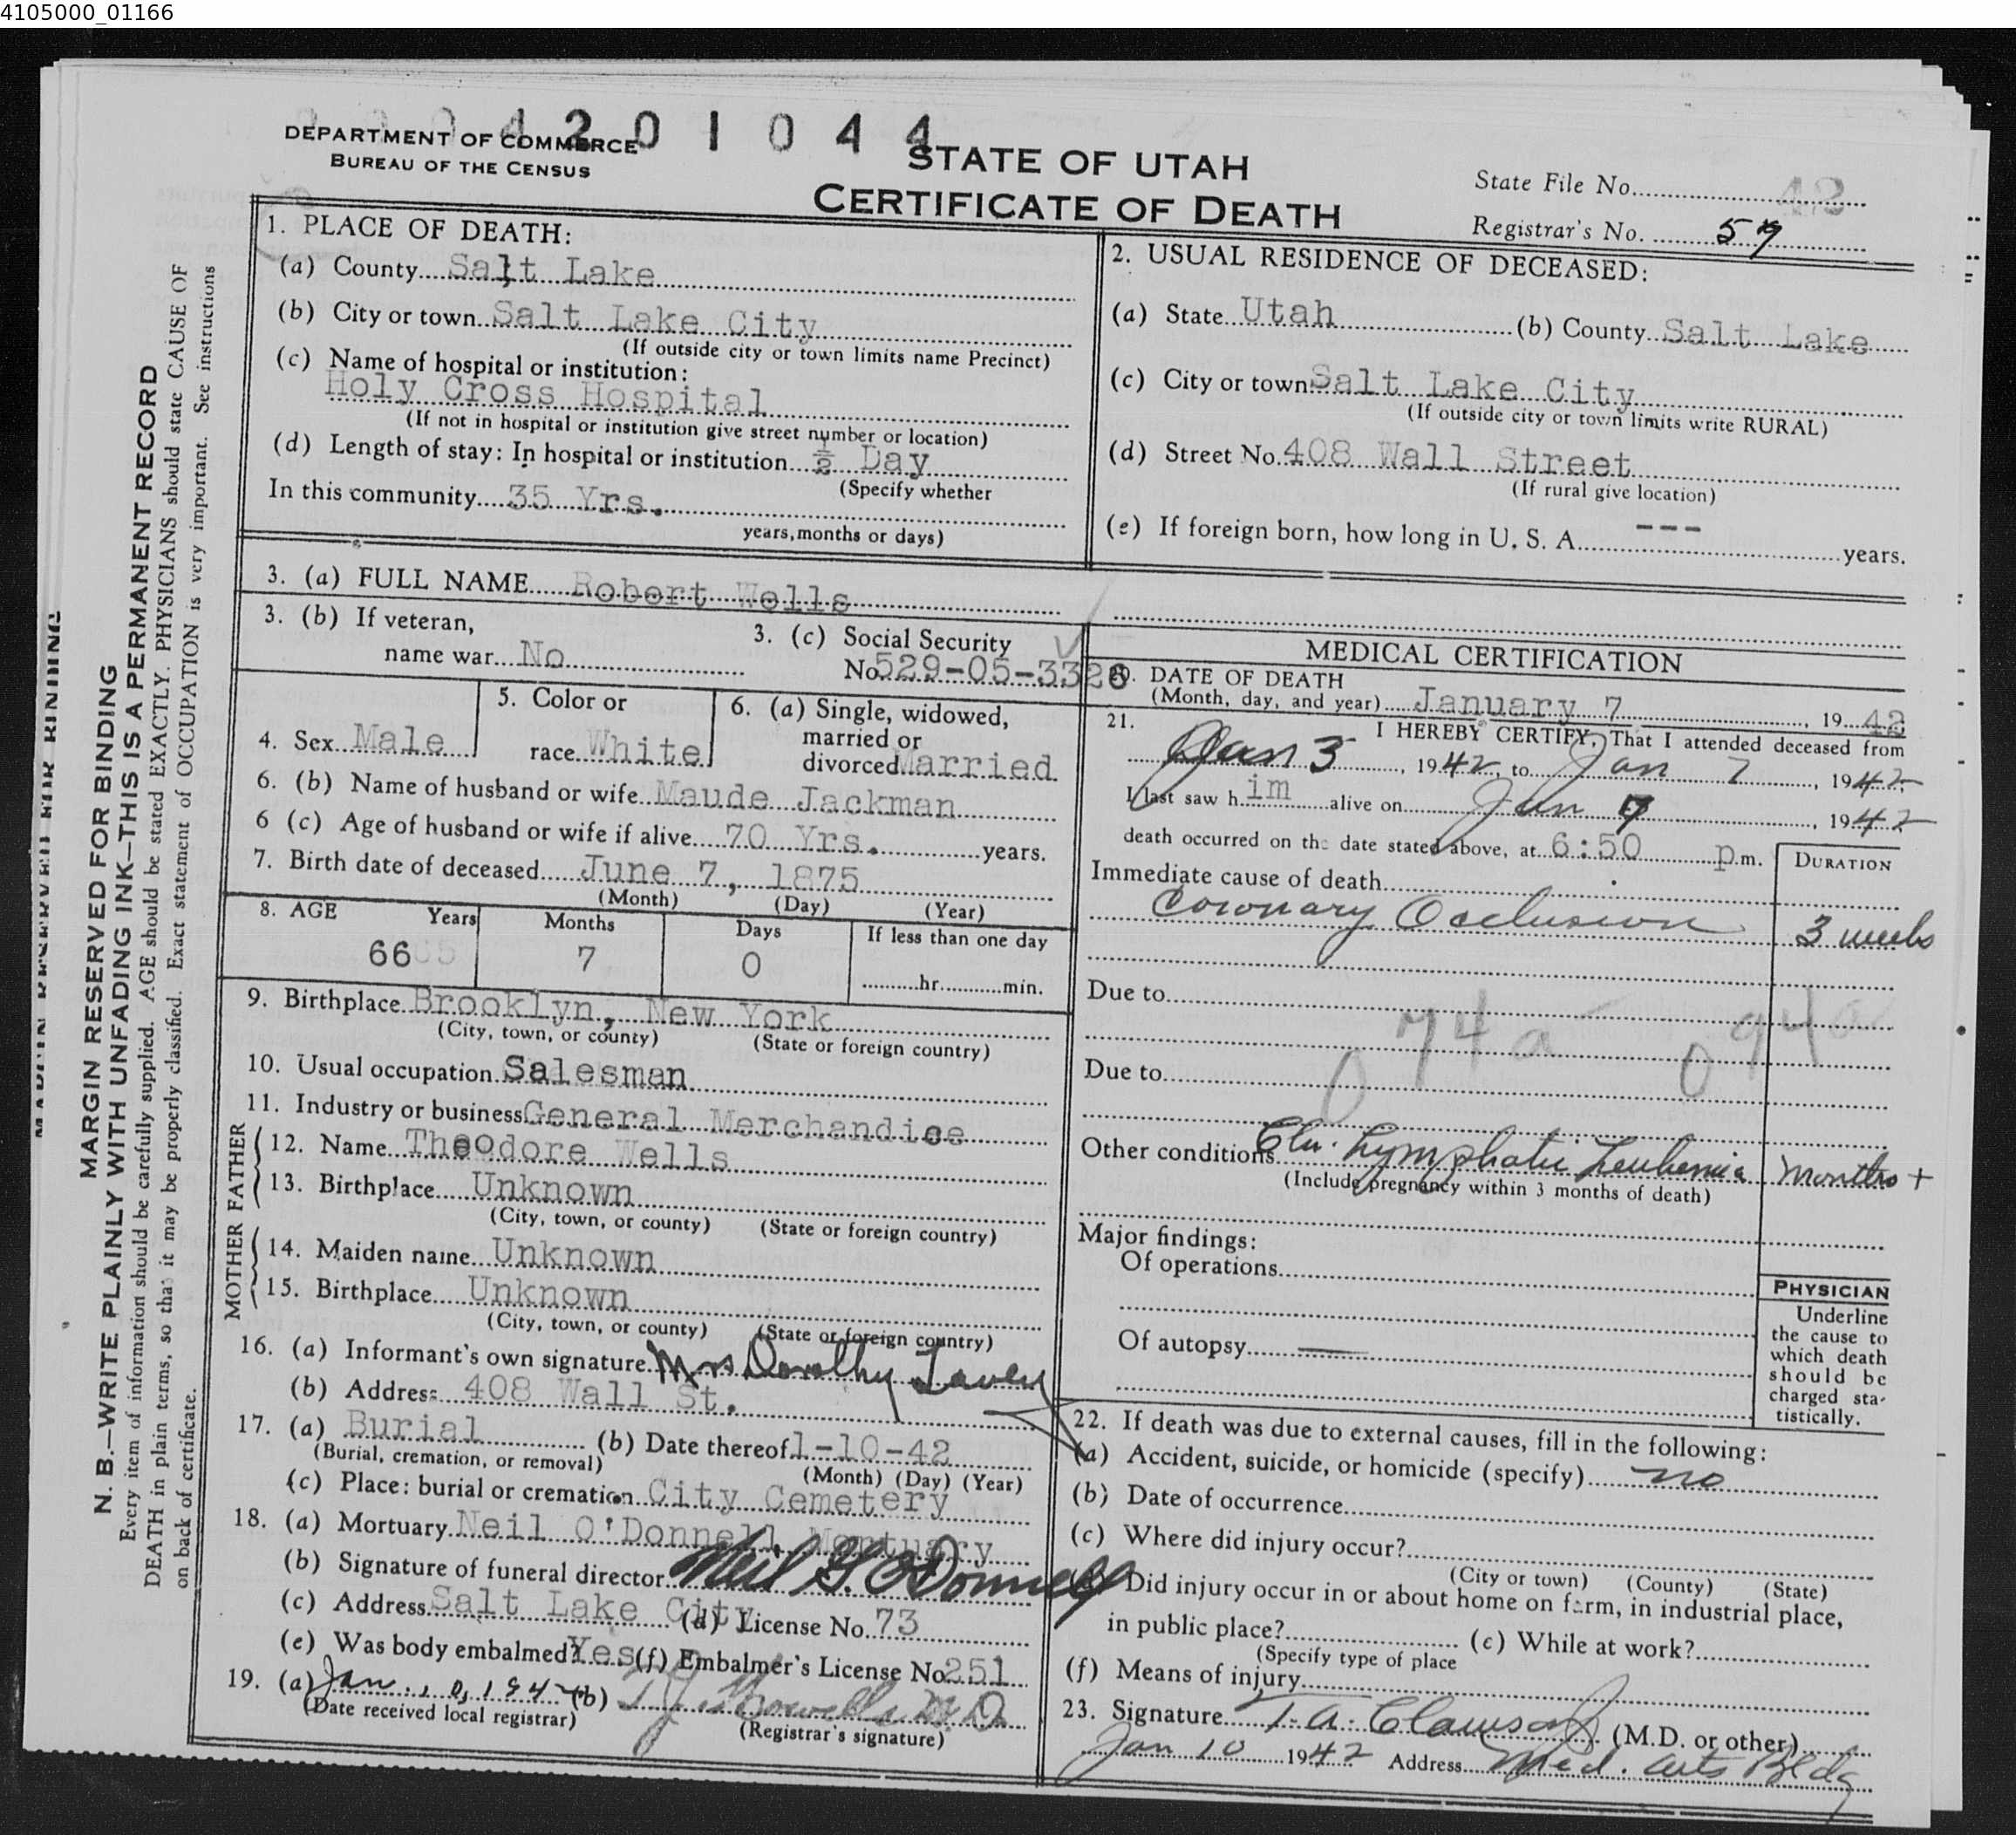 4105000_01166
4201044
DEPARTMENT OF COMMERCE
BUREAU OF THE CENSUS
STATE OF UTAH
CERTIFICATE OF DEATH
State File No. 42
Registrar's No. 57
MARGIN RESERVED FOR BINDING
MARGIN RESERVED FOR BINDING
N. B.—WRITE PLAINLY WITH UNFADING INK—THIS IS A PERMANENT RECORD
Every item of information should be carefully supplied. AGE should be stated EXACTLY. PHYSICIANS should state CAUSE OF
DEATH in plain terms, so that it may be properly classified. Exact statement of OCCUPATION is very important. See instructions
on back of certificate.
1. PLACE OF DEATH:
(a) County Salt Lake
(b) City or town Salt Lake City
(If outside city or town limits name Precinct)
(c) Name of hospital or institution:
Holy Cross Hospital
(If not in hospital or institution give street number or location)
(d) Length of stay: In hospital or institution ½ Day
(Specify whether
In this community 35 Yrs.
years, months or days)
2. USUAL RESIDENCE OF DECEASED:
(a) State Utah (b) County Salt Lake
(c) City or town Salt Lake City
(If outside city or town limits write RURAL)
(d) Street No. 408 Wall Street
(If rural give location)
(e) If foreign born, how long in U. S. A. --- years.
3. (a) FULL NAME Robert Wells
3. (b) If veteran,
name war No
3. (c) Social Security
No. 529-05-3328
4. Sex Male
5. Color or
race White
6. (a) Single, widowed,
married or
divorced Married
6. (b) Name of husband or wife Maude Jackman
6 (c) Age of husband or wife if alive 70 Yrs. years.
7. Birth date of deceased June 7, 1875
(Month) (Day) (Year)
8. AGE Years Months Days If less than one day
66 7 0 hr. min.
9. Birthplace Brooklyn, New York
(City, town, or county) (State or foreign country)
10. Usual occupation Salesman
11. Industry or business General Merchandise
FATHER
12. Name Theodore Wells
13. Birthplace Unknown
(City, town, or county) (State or foreign country)
MOTHER
14. Maiden name Unknown
15. Birthplace Unknown
(City, town, or county) (State or foreign country)
16. (a) Informant's own signature Mrs Dorothy
(b) Address 408 Wall St.
17. (a) Burial (b) Date thereof 1-10-42
(Burial, cremation, or removal) (Month) (Day) (Year)
(c) Place: burial or cremation City Cemetery
18. (a) Mortuary Neil O'Donnell Mortuary
(b) Signature of funeral director Neil G. O'Donnell
(c) Address Salt Lake City (d) License No. 73
(e) Was body embalmed? Yes (f) Embalmer's License No. 251
19. (a) Jan. 10, 1942 (b)
(Date received local registrar) (Registrar's signature)
MEDICAL CERTIFICATION
20. DATE OF DEATH
(Month, day, and year) January 7, 1942
21. I HEREBY CERTIFY, That I attended deceased from
Jan 3, 1942, to Jan 7, 1942
I last saw him alive on Jan 7, 1942
death occurred on the date stated above, at 6:50 p.m.
DURATION
Immediate cause of death
Coronary Occlusion 3 weeks
Due to
074a 094a
Due to
Other conditions Chr. Lymphatic Leukemia Months +
(Include pregnancy within 3 months of death)
Major findings:
Of operations
Of autopsy —
PHYSICIAN
Underline
the cause to
which death
should be
charged sta-
tistically.
22. If death was due to external causes, fill in the following:
(a) Accident, suicide, or homicide (specify) no
(b) Date of occurrence
(c) Where did injury occur?
(City or town) (County) (State)
Did injury occur in or about home on farm, in industrial place,
in public place? (e) While at work?
(Specify type of place
(f) Means of injury
23. Signature T. A. Clawson Jr (M.D. or other)
Jan 10 1942 Address Med. Arts Bldg